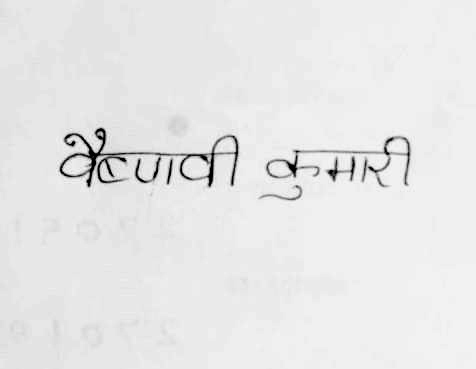 वैष्णवी कुमारी